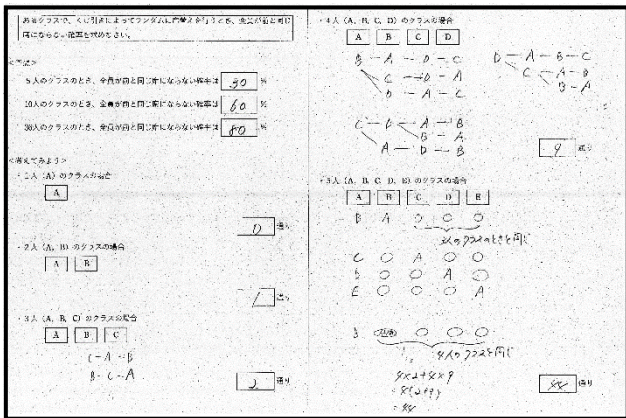 あるクラスで、くじ引きによってランダムに席替えを行うとき、全員が前と同じ
席にならない確率を求めなさい。
<予想>
5人のクラスのとき、全員が前と同じ席にならない確率は 30 %
10人のクラスのとき、全員が前と同じ席にならない確率は 60 %
30人のクラスのとき、全員が前と同じ席にならない確率は 80 %
<考えてみよう>
・1人 (A) のクラスの場合
A
0 通り
・2人 (A, B) のクラスの場合
A B
1 通り
・3人 (A, B, C) のクラスの場合
A B C
C-A-B
B-C-A
2 通り
・4人 (A, B, C, D) のクラスの場合
A B C D
B-A-D-C
C-D-A
D-A-C
C-D-A-B
B-A
A-D-B
D-A-B-C
C-A-B
B-A
9 通り
・5人 (A, B, C, D, E) のクラスの場合
A B C D E
B A ○ ○ ○
3人のクラスのときと同じ
C ○ A ○ ○
D ○ ○ A ○
E ○ ○ ○ A
○ ○ ○
4人のクラスと同じ
4×2+4×9
=4(2+9)
=44
44 通り